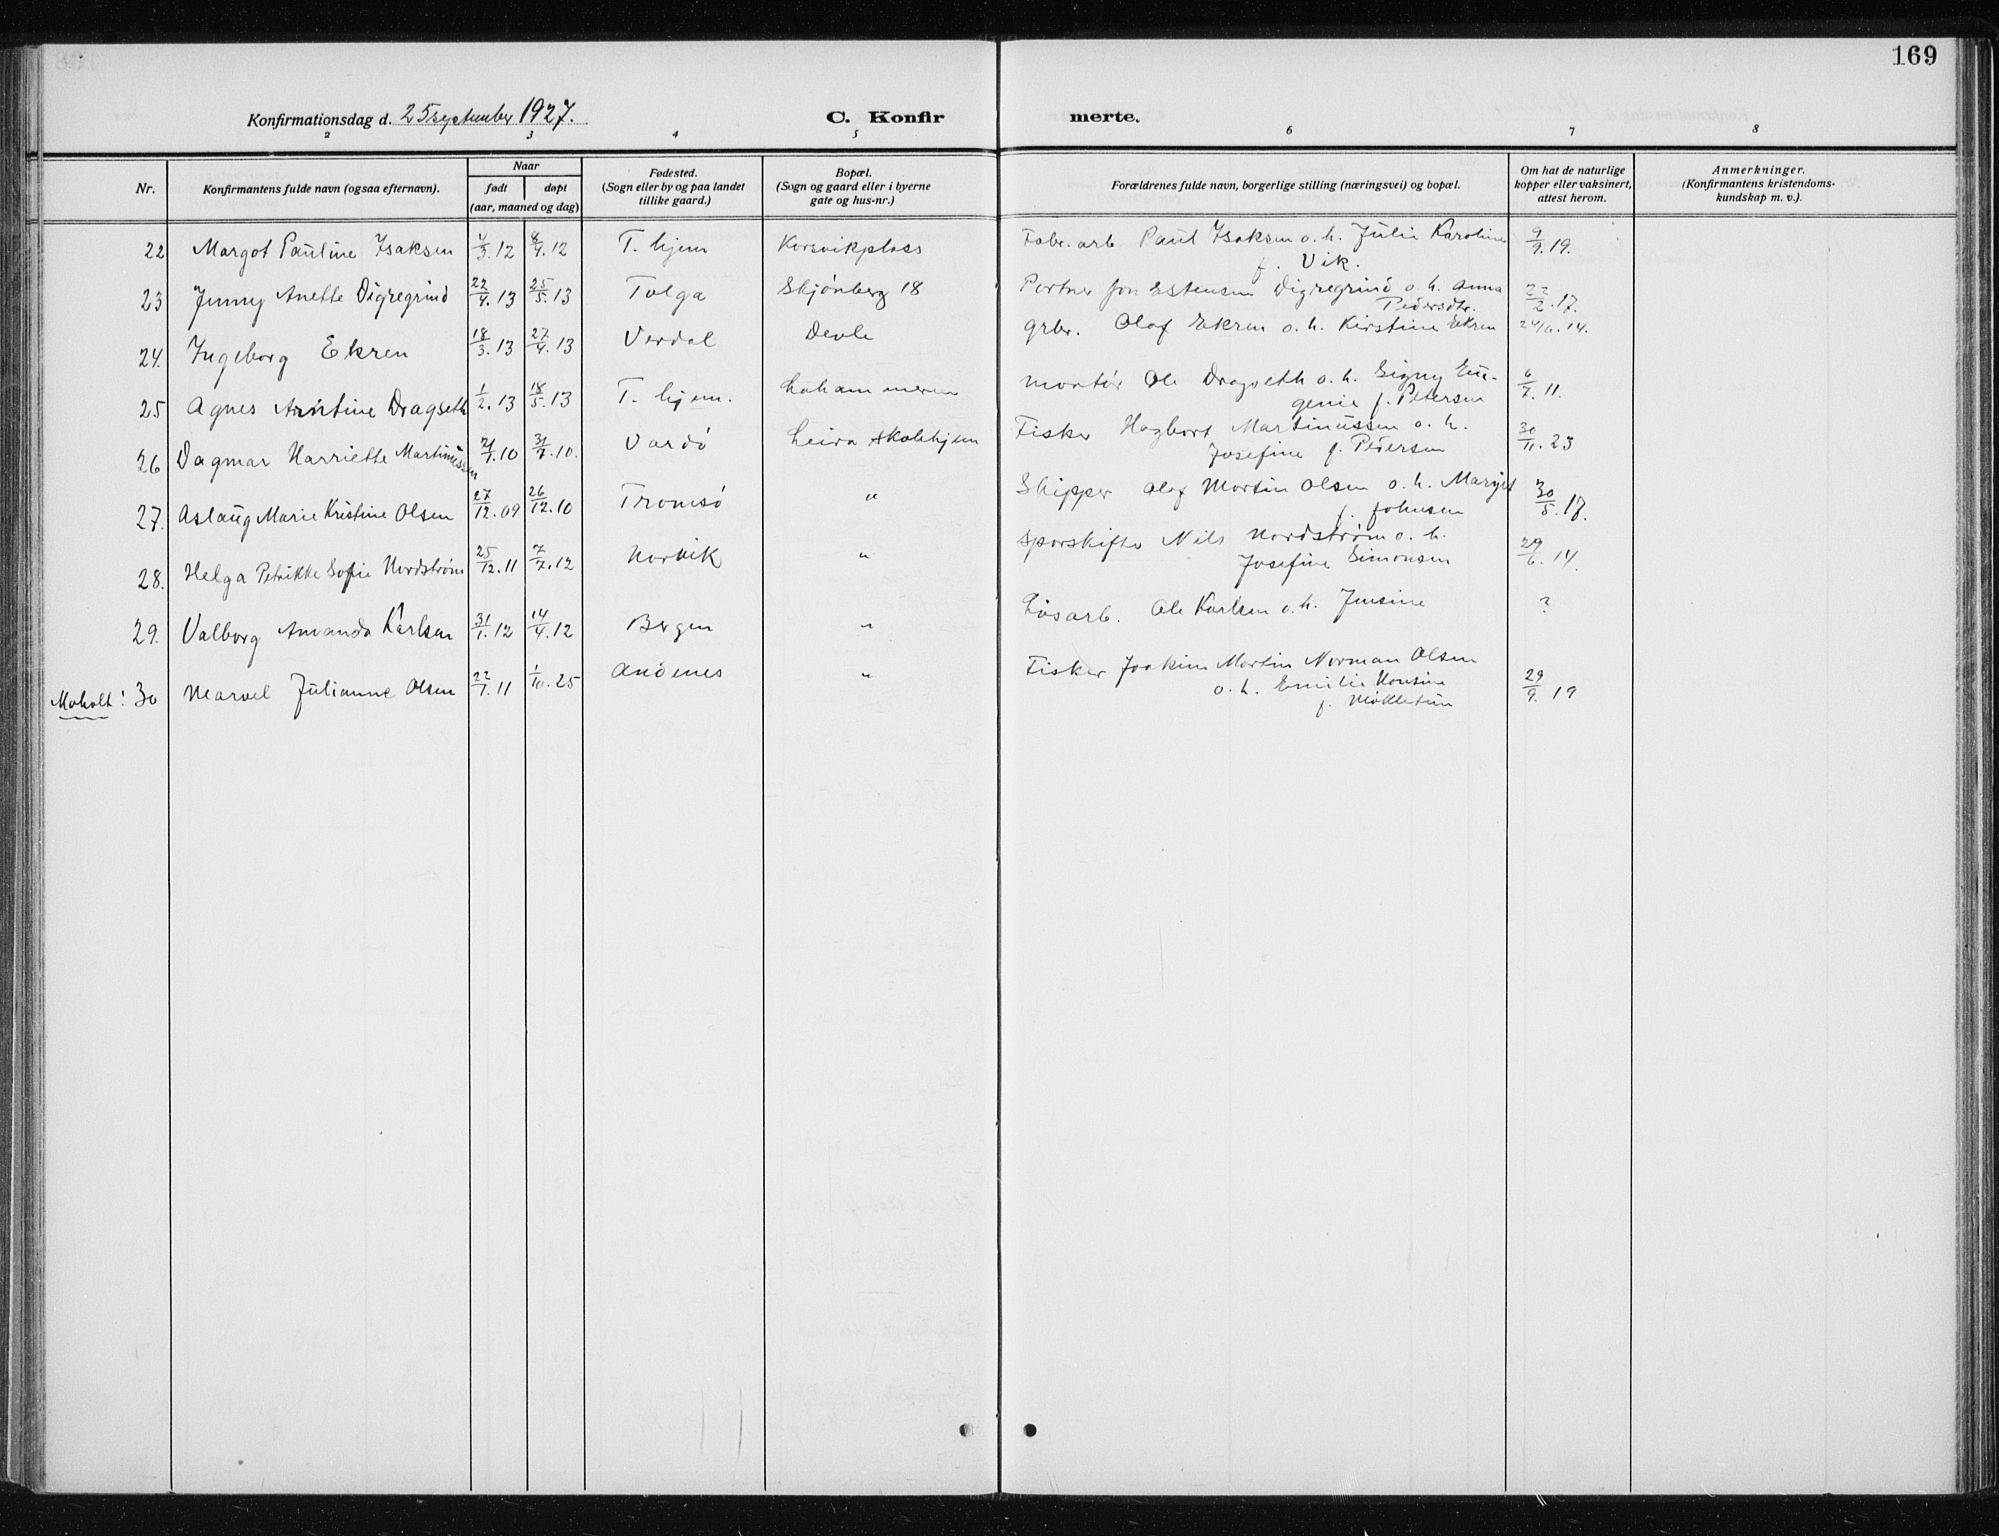 169
Konfirmationsdag d. 25 september 1927. C. Konfirmerte.
2 3 4 5 6 7 8
Nr. Konfirmantens fulde navn (ogsaa efternavn). Naar født døpt (aar, maaned og dag) Fødested. (Sogn eller by og paa landet tillike gaard.) Bopæl. (Sogn og gaard eller i byerne gate og hus-nr.) Forældrenes fulde navn, borgerlige stilling (næringsvei) og bopæl. Om hat de naturlige kopper eller vaksinert, attest herom. Anmerkninger. (Konfirmantens kristendoms-kundskap m. v.).
22 Margot Pauline Isaksen 4/3.12 8/4.12 T. hjem Korsvikplass Fabr. arb. Paul Isaksen o. h. Julie Karoline 9/9.19.
f. Vik.
23 Jenny Anette Digregrind 22/4.13 25/5.13 Tolga Skjönberg 18 Portner Jon Estensen Digregrind o. h. Anna 22/2.17.
Pedersdtr.
24. Ingeborg Ekren 18/3.13 27/4.13 Verdal Devle grbr. Olaf Ekren o. h. Kirstine Ekren 24/6.14.
25 Agnes Arntine Dragseth 1/2.13 18/5.13 T. hjem. Lohammeren montör Ole Dragseth o. h. Signy Eu- 6/7.11.
genie f. Petersen
26 Dagmar Harriette Martinussen /7.10 31/7.10. Vardö Leira skolehjem Fisker Hagbart Martinussen o. h. 30/11.23
Josefine f. Pedersen
27. Aslaug Marie Kristine Olsen 27/12.09 26/12.10 Tromsö " Skipper Olaf Martin Olsen o. h. Margit 30/5.17.
f. Johnsen
28. Helga Petrikke Sofie Nordström 25/12.11 7/7.12 Narvik " Sporskifter Nils Nordström o. h. 29/6.14.
Josefine Simonsen
29. Valborg Amanda Karlsen 31/1.12 14/4.12 Bergen " Lösarb. Ole Karlsen o. h. Jensine ?
Moholt! 30 Marvel Julianne Olsen 22/7.11 1/10.25 Andenes " Fisker Joakim Martin Norman Olsen 29/9.19
o. h. Emilie Hansine
f. Mökletun